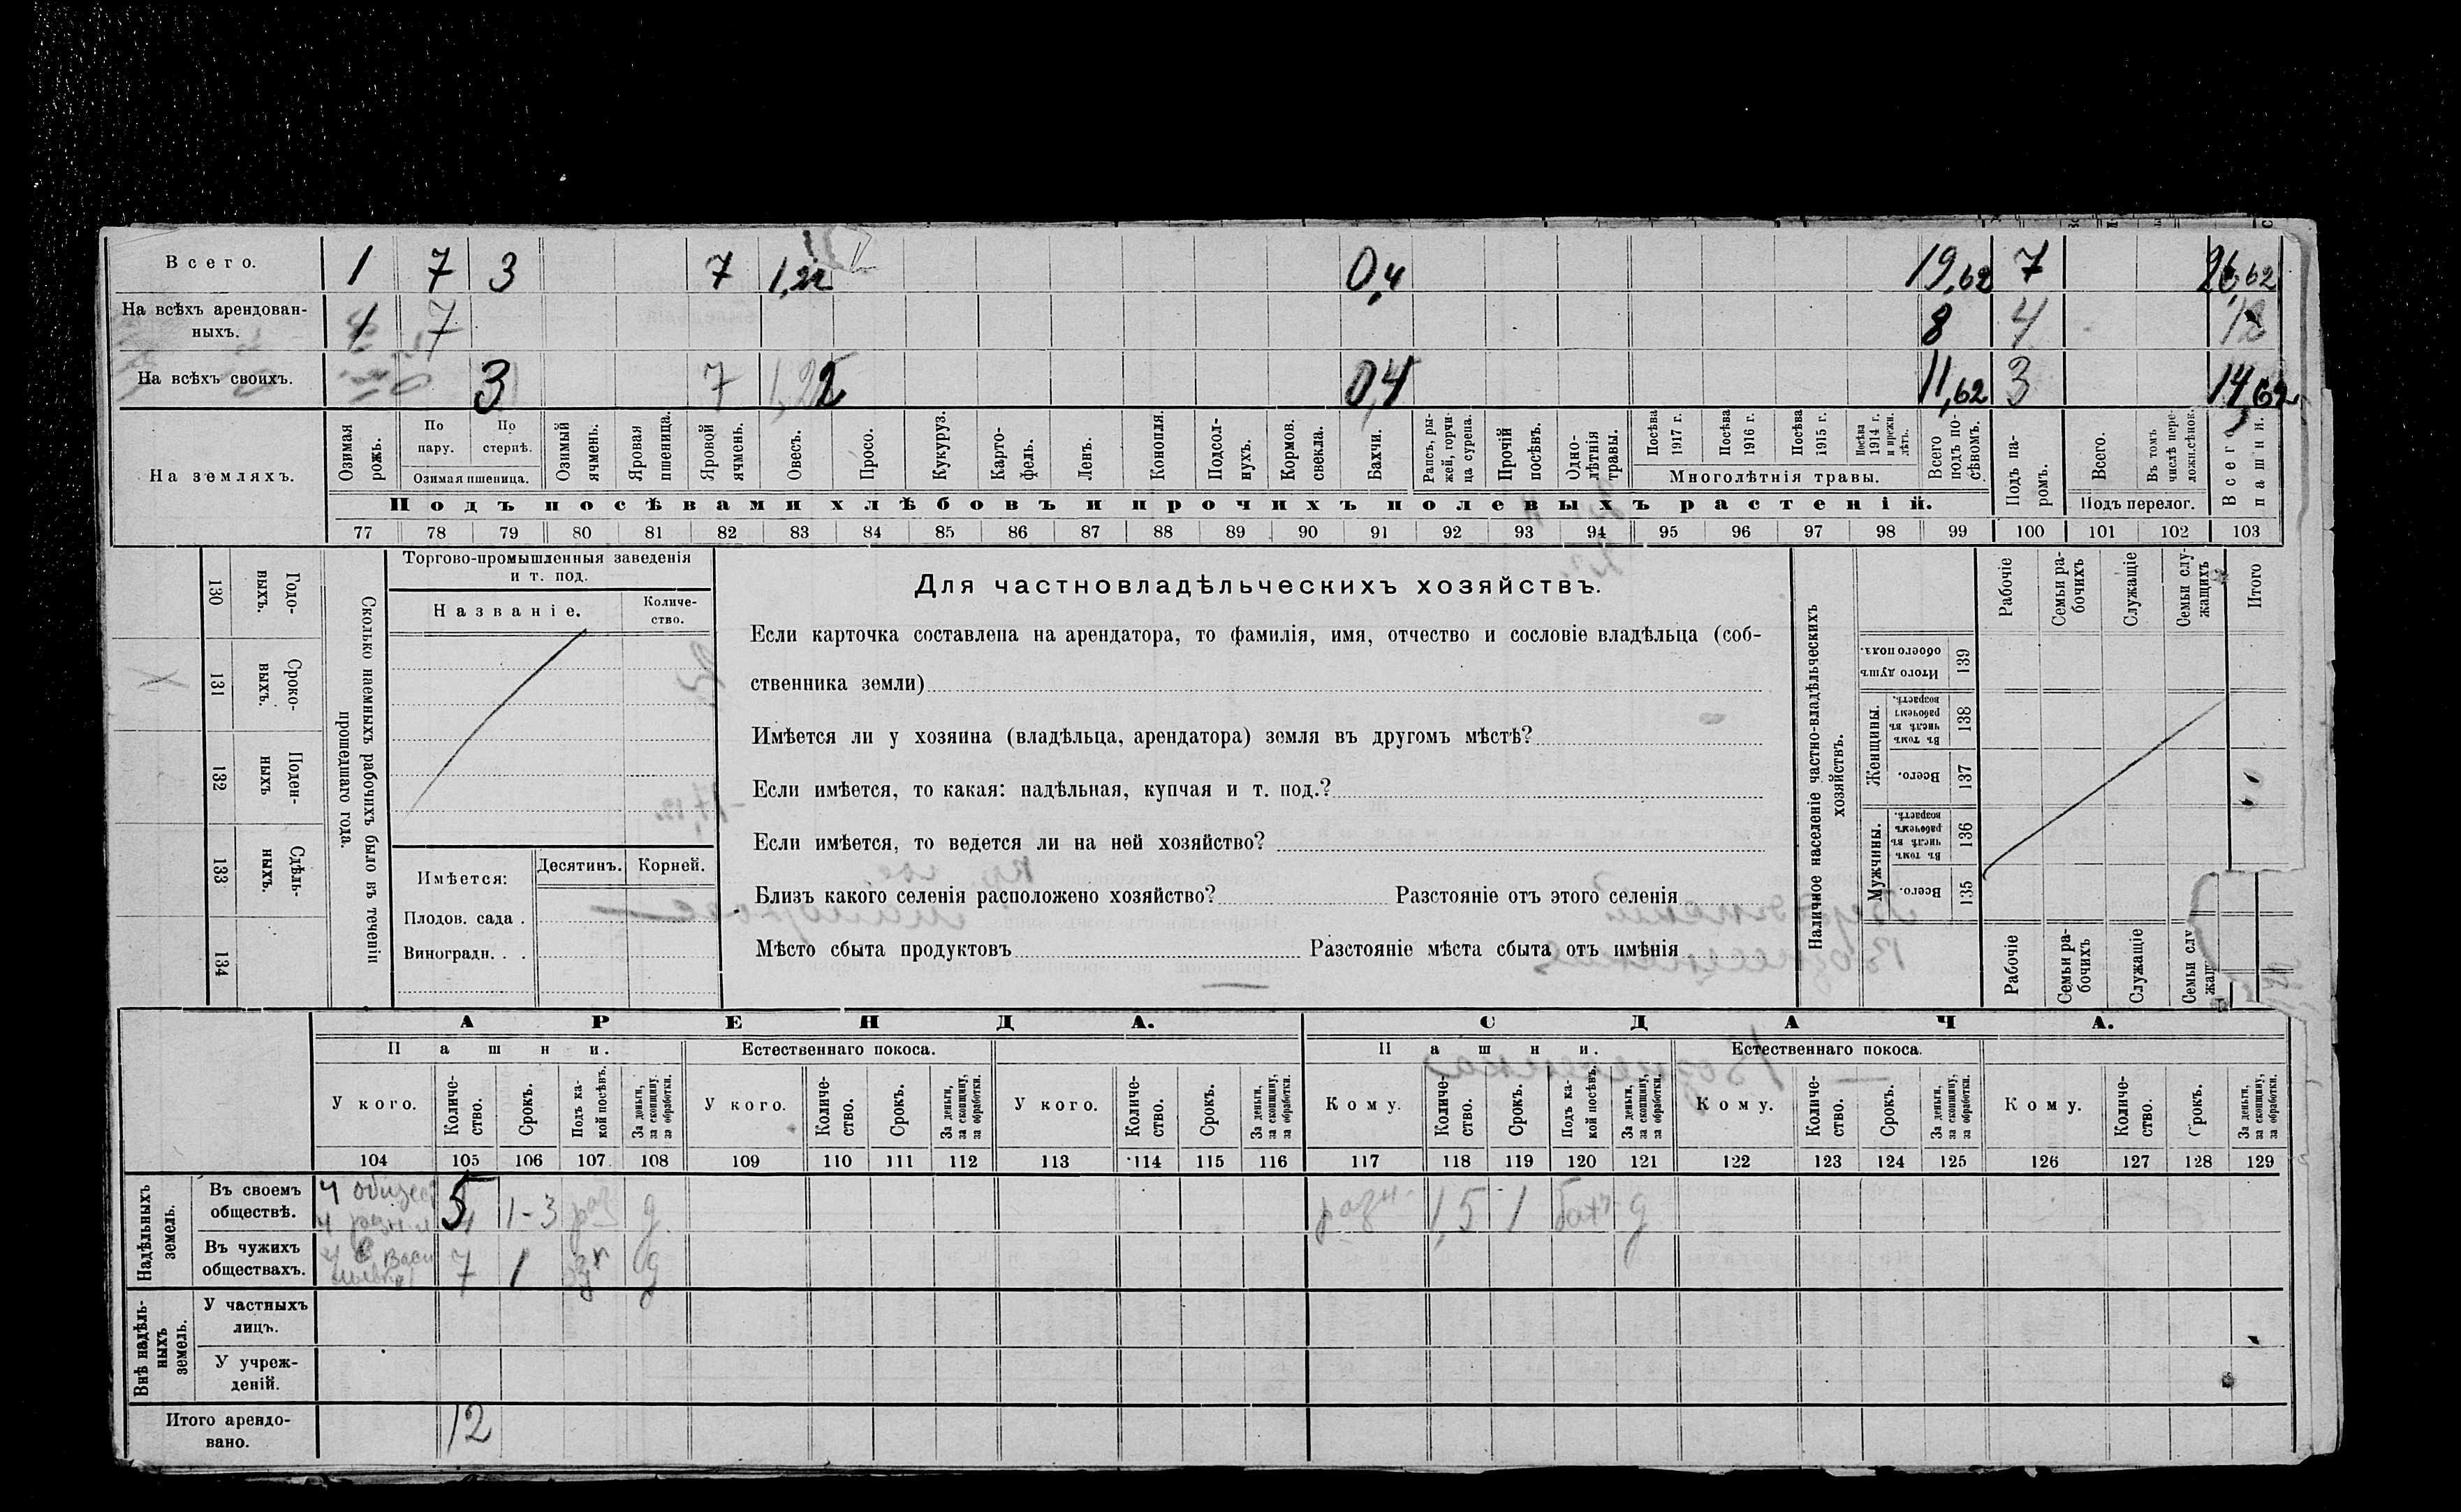 Всего. 1 7 3 7 1,22 0,4 19,62 7 26,62
На всѣхъ арендован-
ныхъ. 1 7 8 4 12
На всѣхъ своихъ. 3 7 1,22 0,4 11,62 3 14,62
На земляхъ.
Озимая рожь.
По пару.
По стернѣ.
Озимая пшеница.
Озимый ячмень.
Яровая пшеница.
Яровой ячмень.
Овесъ.
Просо.
Кукуруз.
Карто-
фель.
Ленъ.
Конопля.
Подсол-
нухъ.
Кормов. свекла.
Бахчи.
Рапсъ, ры-
жей, горчи-
ца сурепа.
Прочій посѣвъ.
Одно-
лѣтнія травы.
Посѣва 1917 г.
Посѣва 1916 г.
Посѣва 1915 г.
Посѣва 1914 г. и прежн. лѣтъ.
Многолѣтнія травы.
Всего подъ по-
сѣвомъ.
Подъ па-
ромъ.
Всего.
Въ томъ числѣ пере-
ложн.сѣнок.
Подъ перелог.
Всего пашни.
Подъ посѣвами хлѣбовъ и прочихъ полевыхъ растеній.
77 78 79 80 81 82 83 84 85 86 87 88 89 90 91 92 93 94 95 96 97 98 99 100 101 102 103
130 Годо-
выхъ.
131 Сроко-
выхъ.
132 Поден-
ныхъ
133 Сдѣль-
ныхъ.
134
Сколько наемныхъ рабочихъ было въ теченіи
прошедшаго года.
Торгово-промышленныя заведенія
и т. под.
Названіе. Количе-
ство.
Имѣется: Десятинъ. Корней.
Плодов. сада .
Виноградн. . .
Для частновладѣльческихъ хозяйствъ.
Если карточка составлена на арендатора, то фамилія, имя, отчество и сословіе владѣльца (соб-
ственника земли)
Имѣется ли у хозяина (владѣльца, арендатора) земля въ другомъ мѣстѣ?
Если имѣется, то какая: надѣльная, купчая и т. под.?
Если имѣется, то ведется ли на ней хозяйство?
Близъ какого селенія расположено хозяйство? Разстояніе отъ этого селенія
Мѣсто сбыта продуктовъ Разстояніе мѣста сбыта отъ имѣнія
Наличное населеніе частно-владѣльческихъ
хозяйствъ.
Рабочіе
Семьи ра-
бочихъ
Служащіе
Семьи слу-
жащихъ
Итого
Итого душъ обоего пола. 139
Женщины.
Въ томъ числѣ въ рабочемъ возрастѣ. 138
Всего. 137
Мужчины.
Въ томъ числѣ въ рабочемъ возрастѣ. 136
Всего. 135
Рабочіе
Семьи ра-
бочихъ
Служащіе
Семьи слу
жащ
АРЕНДА. СДАЧА.
Пашни. Естественнаго покоса. Пашни. Естественнаго покоса.
У кого. Количе-
ство. Срокъ. Подъ ка-
кой посѣвъ. За деньги, за скопщину, за обработки.
У кого. Количе-
ство. Срокъ. За деньги, за скопщину, за обработки.
У кого. Количе-
ство. Срокъ. За деньги, за скопщину, за обработки.
Кому. Количе-
ство. Срокъ. Подъ ка-
кой посѣвъ. За деньги, за скопщину, за обработки.
Кому. Количе-
ство. Срокъ. За деньги, за скопщину, за обработки.
Кому. Количе-
ство. Срокъ. За деньги, за скопщину, за обработки.
104 105 106 107 108 109 110 111 112 113 114 115 116 117 118 119 120 121 122 123 124 125 126 127 128 129
Надѣльныхъ
земель.
Въ своемъ
обществѣ. 5 1-3 раз д разн. 1,5 1 бахч д
Въ чужихъ
обществахъ. 7 1 д
Внѣ надѣль-
ныхъ
земель.
У частныхъ
лицъ.
У учреж-
деній.
Итого арендо-
вано. 12